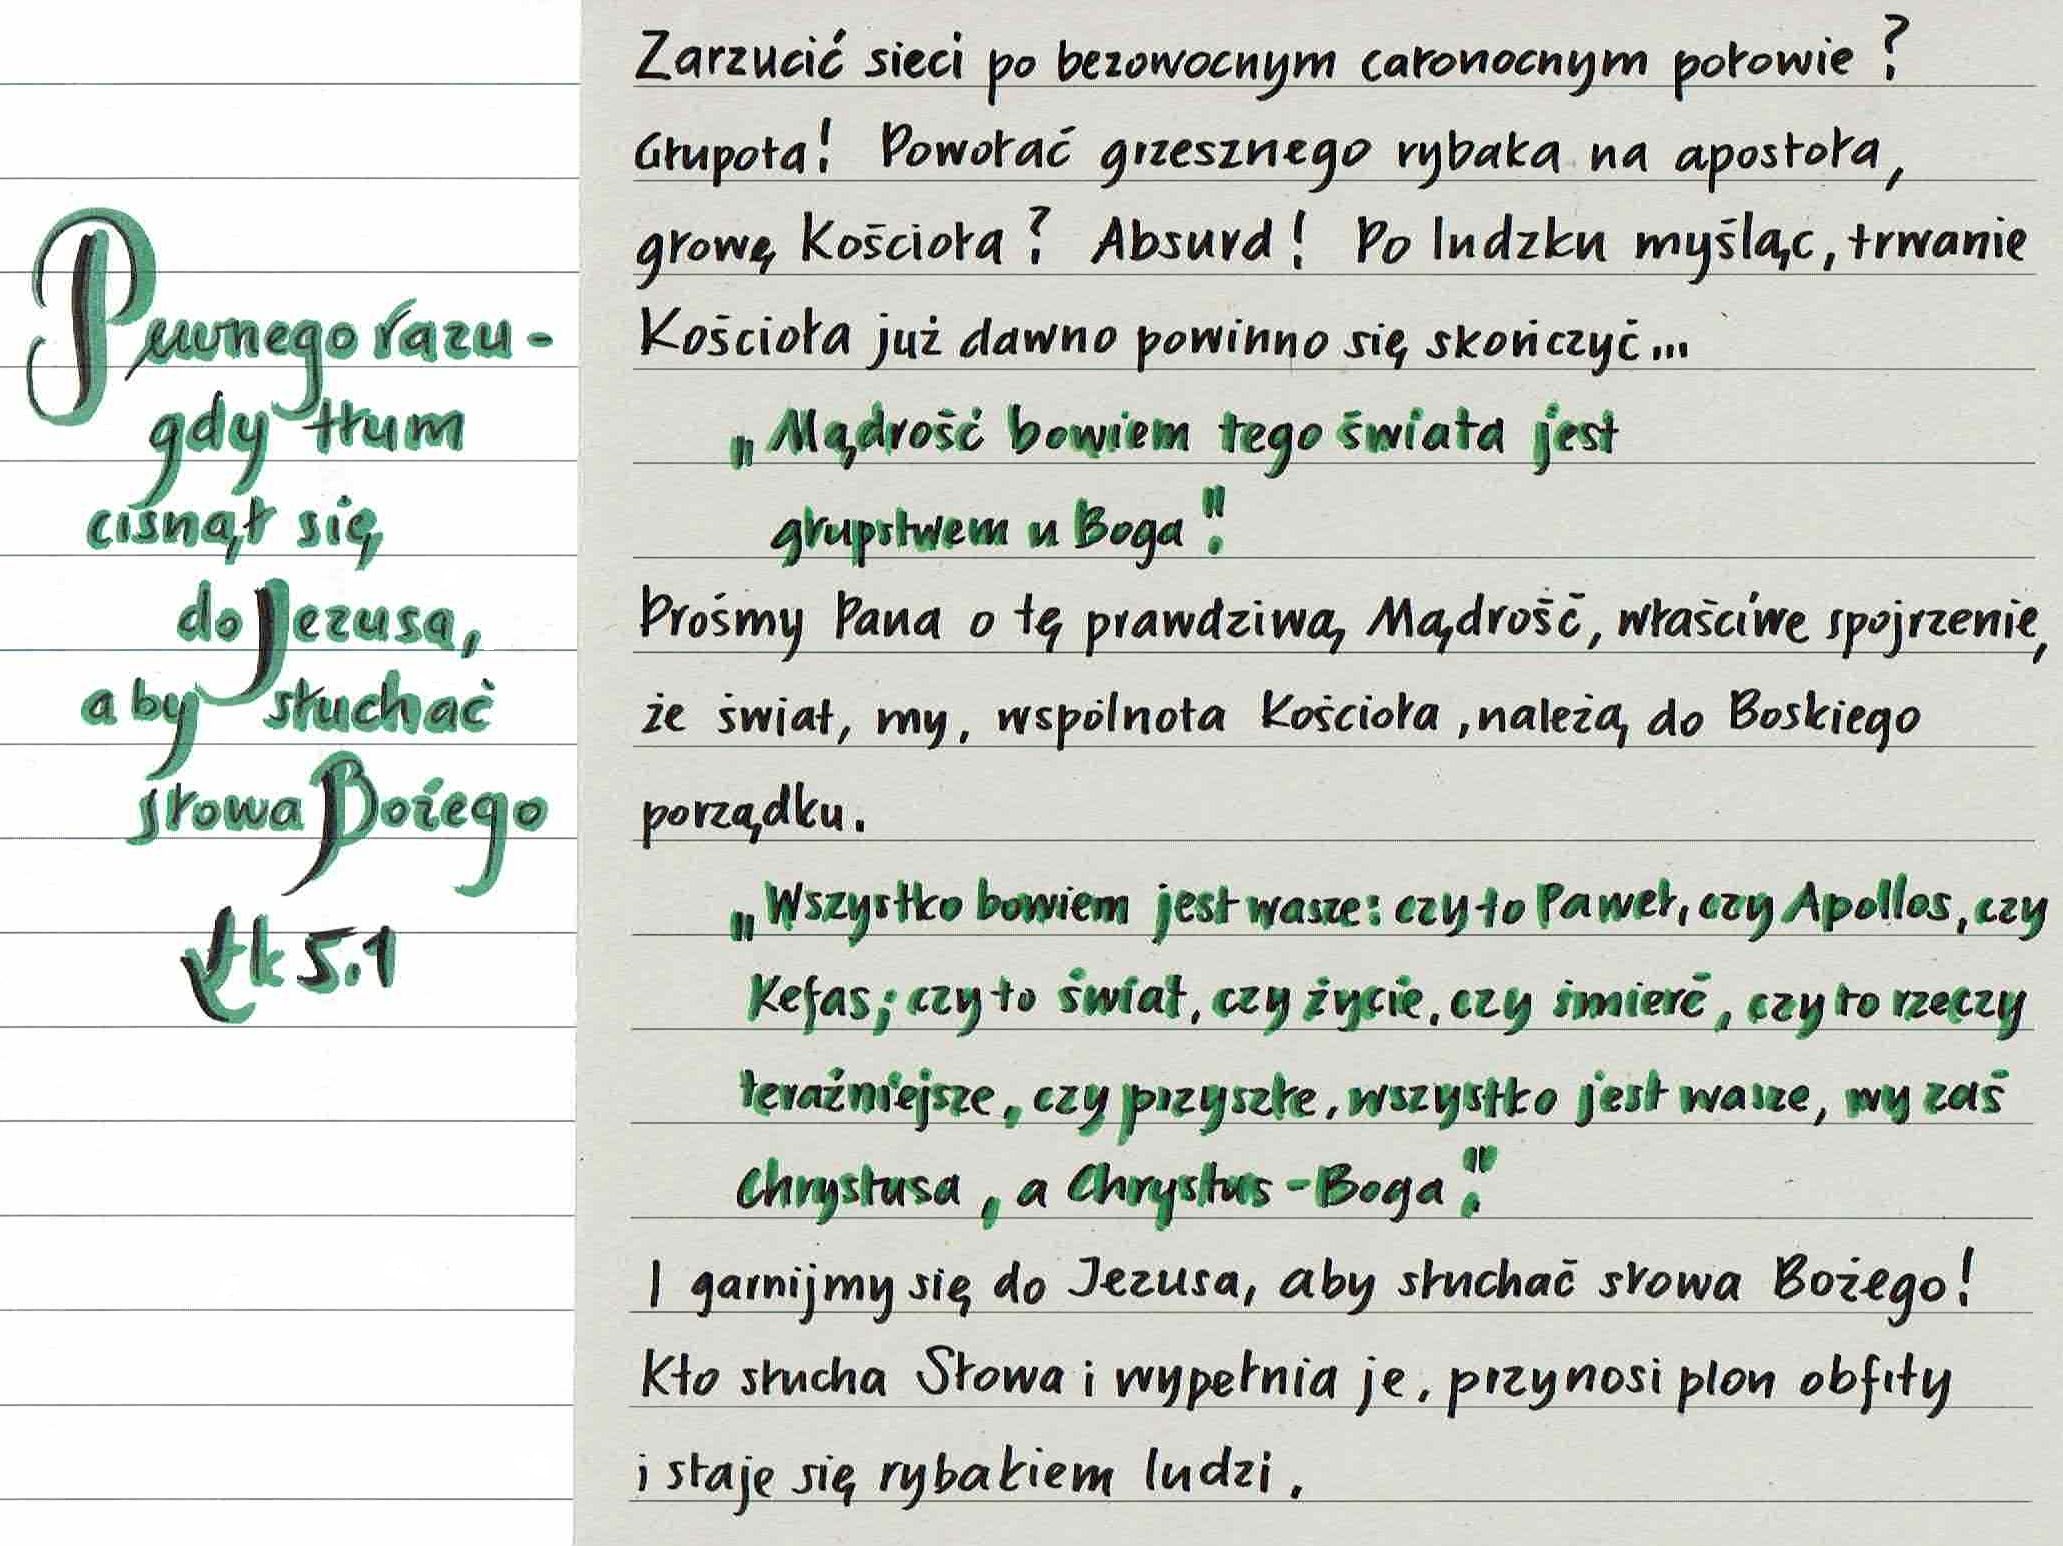 Pewnego razu -
gdy tłum
cisnął się
do Jezusa,
aby słuchać
słowa Bożego
Łk 5.1
Zarzucić sieci po bezowocnym całonocnym połowie ?
Głupota! Powołać grzesznego rybaka na apostoła,
głowę Kościoła ? Absurd ! Po ludzku myśląc, trwanie
Kościoła już dawno powinno się skończyć...
„Mądrość bowiem tego świata jest
głupstwem u Boga".
Prośmy Pana o tę prawdziwą Mądrość, właściwe spojrzenie,
że świat, my, wspólnota Kościoła, należą do Boskiego
porządku.
„Wszystko bowiem jest wasze: czy to Paweł, czy Apollos, czy
Kefas; czy to świat, czy życie, czy śmierć, czy to rzeczy
teraźniejsze, czy przyszłe, wszystko jest wasze, wy zaś
Chrystusa, a Chrystus - Boga".
I garnijmy się do Jezusa, aby słuchać słowa Bożego!
Kto słucha Słowa i wypełnia je, przynosi plon obfity
i staje się rybakiem ludzi.